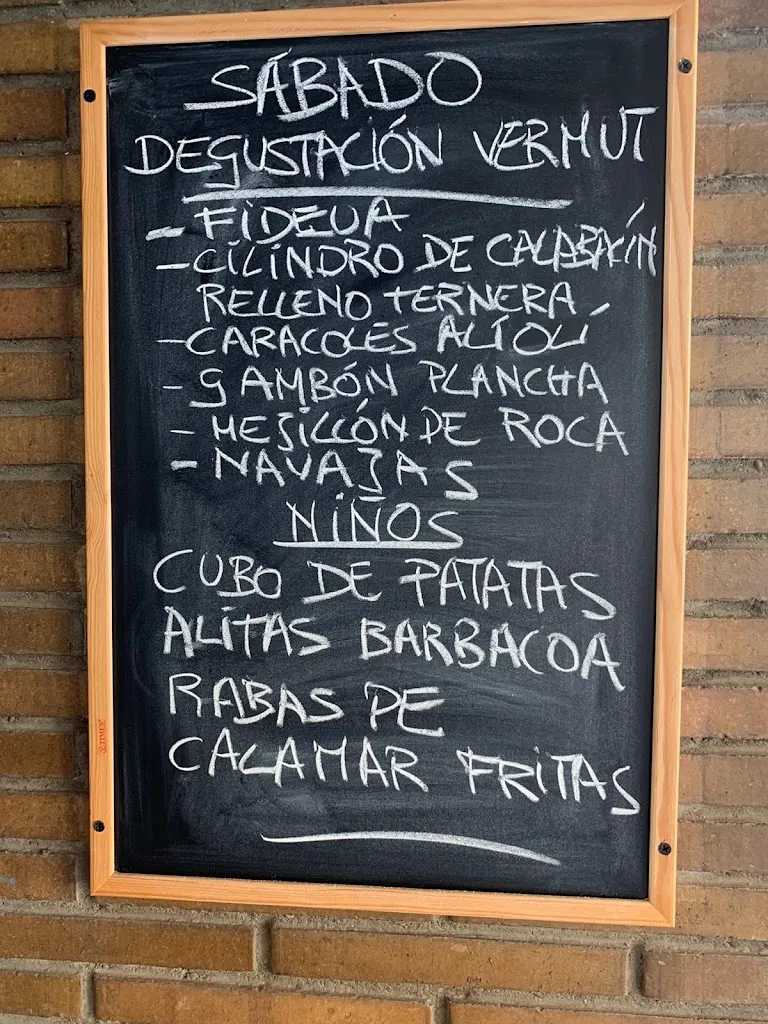 SÁBADO
DEGUSTACIÓN VERMUT
- FIDEUA
- CILINDRO DE CALABACÍN
RELLENO TERNERA
- CARACOLES ALIOLÍ
- GAMBÓN PLANCHA
- MEJILLÓN DE ROCA
- NAVAJAS
NIÑOS
CUBO DE PATATAS
ALITAS BARBACOA
RABAS DE
CALAMAR FRITAS